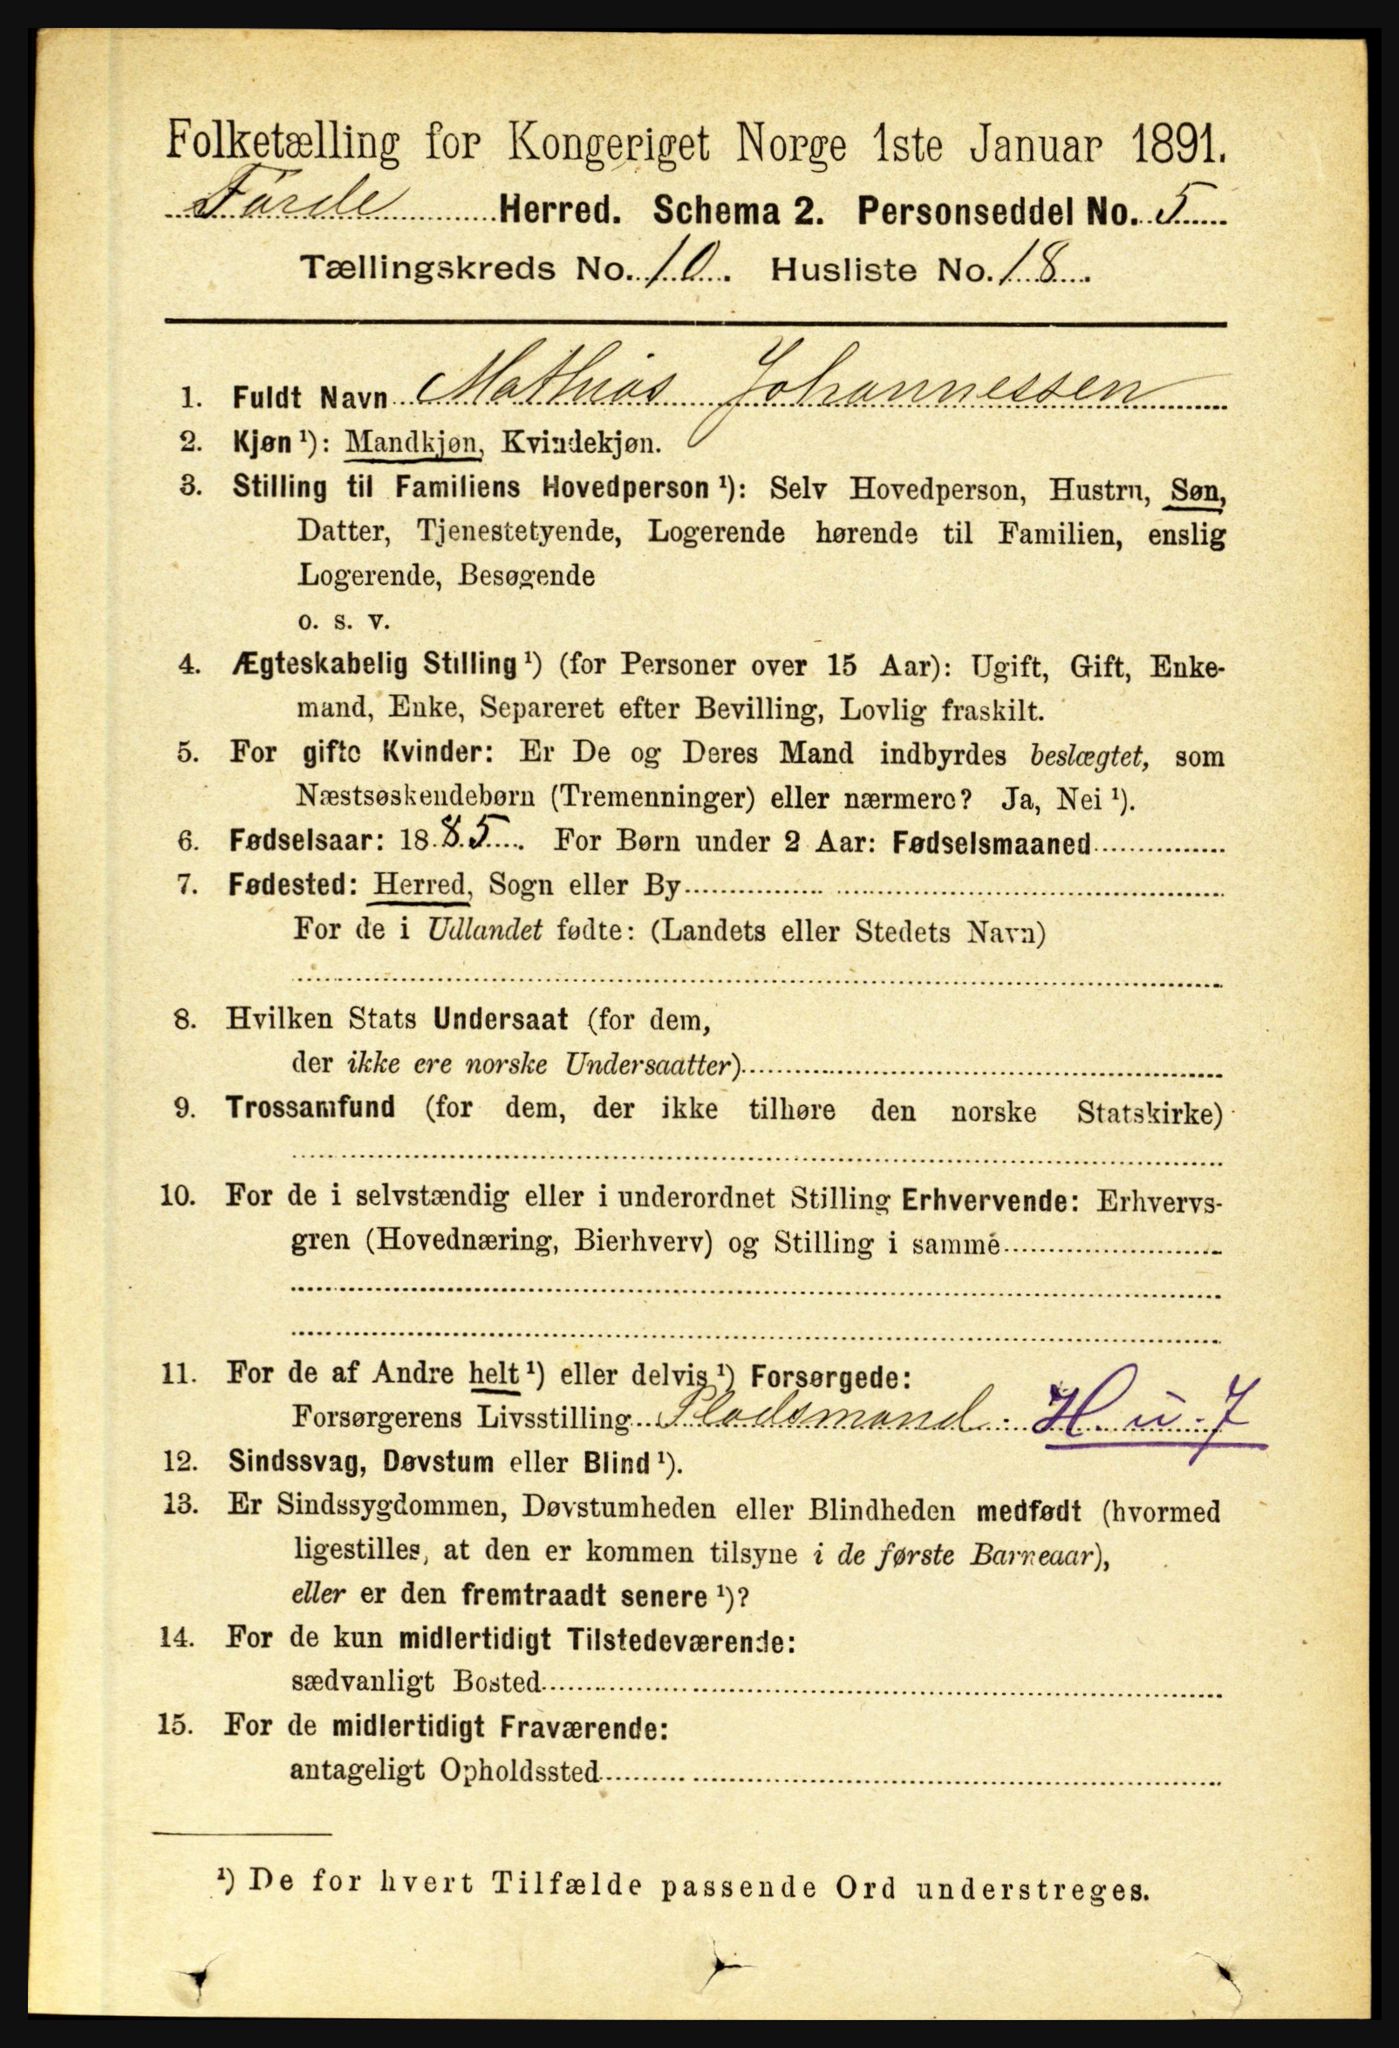 Folketælling for Kongeriget Norge 1ste Januar 1891.
Førde Herred. Schema 2. Personseddel No. 5
Tællingskreds No. 10. Husliste No. 18.
1. Fuldt Navn Mathias Johannessen
2. Kjøn ¹): Mandkjøn, Kvindekjøn.
3. Stilling til Familiens Hovedperson ¹): Selv Hovedperson, Hustru, Søn,
Datter, Tjenestetyende, Logerende hørende til Familien, enslig
Logerende, Besøgende
o. s. v.
4. Ægteskabelig Stilling ¹) (for Personer over 15 Aar): Ugift, Gift, Enke-
mand, Enke, Separeret efter Bevilling, Lovlig fraskilt.
5. For gifte Kvinder: Er De og Deres Mand indbyrdes beslægtet, som
Næstsøskendebørn (Tremenninger) eller nærmere? Ja, Nei ¹).
6. Fødselsaar: 1885. For Børn under 2 Aar: Fødselsmaaned
7. Fødested: Herred, Sogn eller By
For de i Udlandet fødte: (Landets eller Stedets Navn)
8. Hvilken Stats Undersaat (for dem,
der ikke ere norske Undersaatter)
9. Trossamfund (for dem, der ikke tilhøre den norske Statskirke)
10. For de i selvstændig eller i underordnet Stilling Erhvervende: Erhvervs-
gren (Hovednæring, Bierhverv) og Stilling i samme
11. For de af Andre helt ¹) eller delvis ¹) Forsørgede:
Forsørgerens Livsstilling Pladsmand. H. u. 7
12. Sindssvag, Døvstum eller Blind ¹).
13. Er Sindssygdommen, Døvstumheden eller Blindheden medfødt (hvormed
ligestilles, at den er kommen tilsyne i de første Barneaar),
eller er den fremtraadt senere ¹)?
14. For de kun midlertidigt Tilstedeværende:
sædvanligt Bosted
15. For de midlertidigt Fraværende:
antageligt Opholdssted
¹) De for hvert Tilfælde passende Ord understreges.